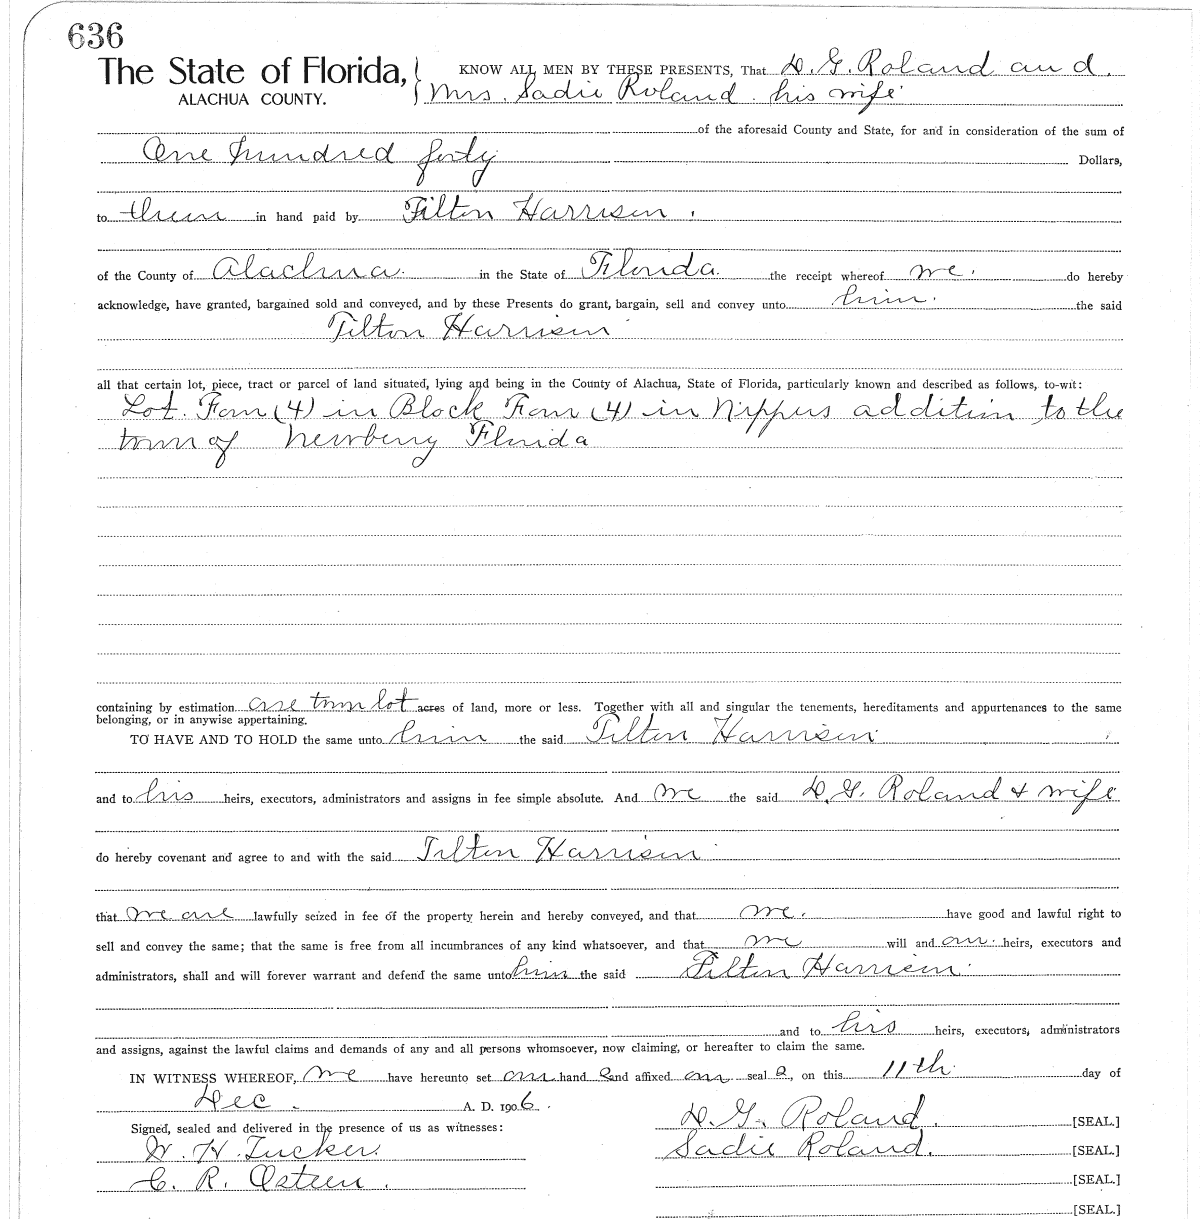 636
The State of Florida, KNOW ALL MEN BY THESE PRESENTS, That D. G. Roland and.
ALACHUA COUNTY. Mrs. Sadie Roland his wife
of the aforesaid County and State, for and in consideration of the sum of
One hundred forty Dollars,
to them in hand paid by Tilton Harrison.
of the County of Alachua in the State of Florida the receipt whereof we. do hereby
acknowledge, have granted, bargained sold and conveyed, and by these Presents do grant, bargain, sell and convey unto him. the said
Tilton Harrison
all that certain lot, piece, tract or parcel of land situated, lying and being in the County of Alachua, State of Florida, particularly known and described as follows, to-wit:
Lot. Four (4) in Block Four (4) in Nippers addition to the
town of Newberry Florida
containing by estimation one town lot acres of land, more or less. Together with all and singular the tenements, hereditaments and appurtenances to the same
belonging, or in anywise appertaining.
TO HAVE AND TO HOLD the same unto him the said Tilton Harrison
and to his heirs, executors, administrators and assigns in fee simple absolute. And we the said D. G. Roland & wife
do hereby covenant and agree to and with the said Tilton Harrison
that we are lawfully seized in fee of the property herein and hereby conveyed, and that we. have good and lawful right to
sell and convey the same; that the same is free from all incumbrances of any kind whatsoever, and that we will and our heirs, executors and
administrators, shall and will forever warrant and defend the same unto him the said Tilton Harrison
and to his heirs, executors, administrators
and assigns, against the lawful claims and demands of any and all persons whomsoever, now claiming, or hereafter to claim the same.
IN WITNESS WHEREOF, we have hereunto set our hand s and affixed our seal s, on this 11th day of
Dec. A. D. 1906.
Signed, sealed and delivered in the presence of us as witnesses: D. G. Roland. [SEAL.]
W. H. Tucker. Sadie Roland. [SEAL.]
C. R. Osteen. [SEAL.]
[SEAL.]